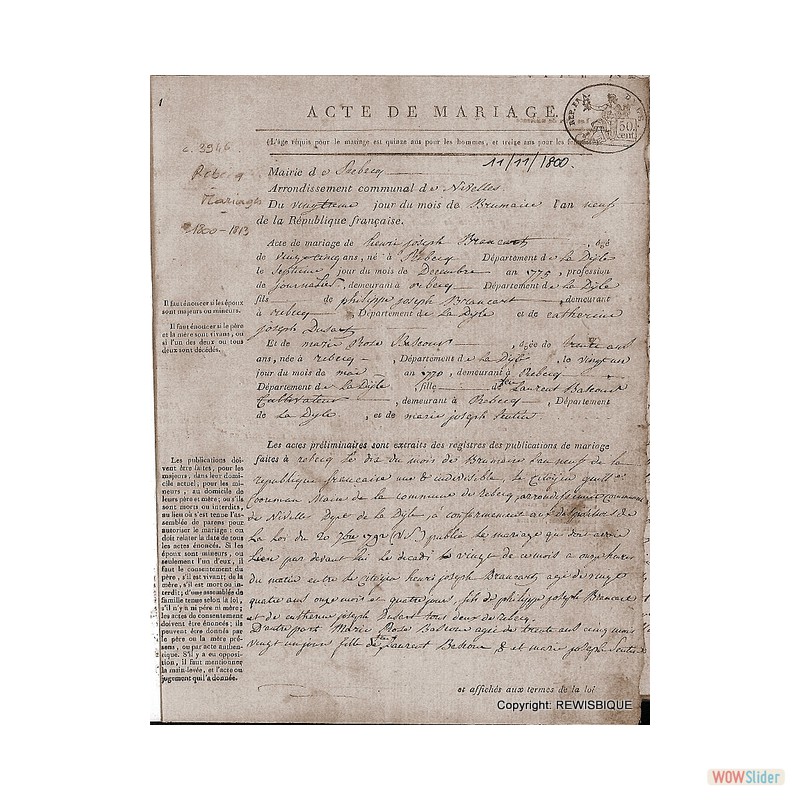 1
ACTE DE MARIAGE.
REP. FRA.
50.
cent
(L'âge requis pour le mariage est quinze ans pour les hommes, et treize ans pour les femmes.)
11/11/1800.
Rebecq
Mariages
1800-1813
Mairie de Rebecq
Arrondissement communal de Nivelles
Du vingtieme jour du mois de Brumaire l'an neuf
de la République française.
Acte de mariage de henri joseph Brancart, âgé
de vingt cinq ans, né à Rebecq Département de La Dyle
le Septieme jour du mois de Decembre an 1775, profession
de journalier, demeurant à rebecq Département de La Dyle
fils de philippe joseph Brancart, demeurant
à rebecq, Département de La Dyle et de catherine
joseph Dusart
Et de marie Rose Bascour, âgée de trente ans
ans, née à rebecq, Département de La Dyle, le vingt un
jour du mois de mai an 1770, demeurant à Rebecq
Département de La Dyle fille de feu Laurent Bascour
Cultivateur, demeurant à Rebecq, Département
de La Dyle, et de marie joseph
Il faut énoncer si les époux
sont majeurs ou mineurs.
Il faut énoncer si le père
et la mère sont vivans, ou
si l'un des deux ou tous
deux sont décédés.
Les actes préliminaires sont extraits des registres des publications de mariage
faites à rebecq le dix du mois de Brumaire L'an neuf de la
republique francaise une & indivisible, Le Citoyen
Maire de la commune de rebecq arrondissement communal
de Nivelles Dept de la Dyle a conformement aux dispositions de
La Loi du 20 7bre 1792 (V.S.) publie Le mariage qui doit avoir
Lieu par devant lui le decadi le vingt de ce mois a onze heures
du matin entre Le citoyen henri joseph Brancart, agé de vingt
quatre ans onze mois et quatre jours, fils de philippe joseph Brancart
et de catherine joseph Dusart tous deux de rebecq
D'autre part Marie Rose Bascour agée de trente ans cinq mois
vingt un jours fille de feu Laurent Bascour & et marie joseph
Les publications doi-
vent être faites, pour les
majeurs, dans leur domi-
cile actuel, pour les mi-
neurs, au domicile de
leurs père et mère; ou s'ils
sont morts ou interdits,
au lieu où s'est tenue l'as-
semblée de parens pour
autoriser le mariage: on
doit relater la date de tous
les actes énoncés. Si les
époux sont mineurs, ou
seulement l'un d'eux, il
faut le consentement du
père, s'il est vivant; de la
mère, s'il est mort ou in-
terdit; d'une assemblée de
famille tenue selon la loi,
s'il n'y a ni père ni mère;
les actes de consentement
doivent être énoncés; ils
peuvent être donnés par
le père ou la mère pré-
sens, ou par acte authen-
tique. S'il y a eu opposi-
tion, il faut mentionner
la main-levée, et l'acte ou
jugement qui l'a donnée.
et affichés aux termes de la loi
Copyright: REWISBIQUE
WOWSlider